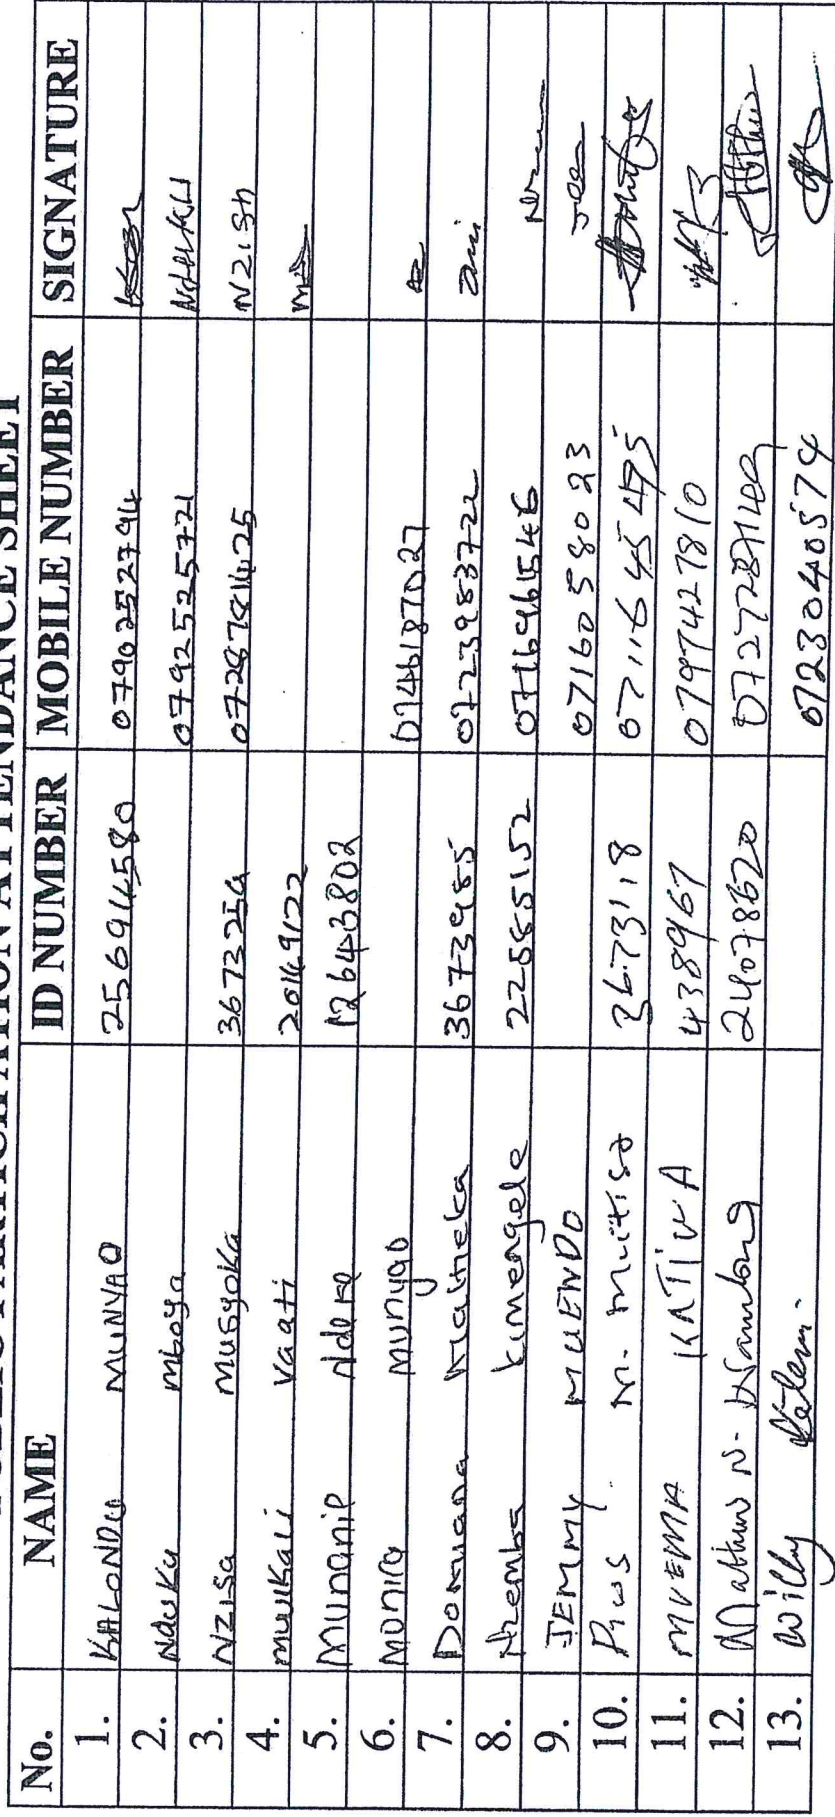 PUBLIC PARTICIPATION ATTENDANCE SHEET
No. NAME ID NUMBER MOBILE NUMBER SIGNATURE
1. KALONDU MUNYAO 25694580 0790252794
2. Nduku Mboya 0792525721 Nduku
3. Nzisa Musyoka 3673259 0728784425 Nzish
4. Muukali Vaati 20149122
5. Munanie Ndere 12643802
6. Monica Munyao 0746187027
7. Maineka 3673985 0723983722
8. Nzemba Kimengele 22885152 0716961546
9. JEMMY MUENDO 0716058023 Jem
10. Pius M. Mutiso 3673118 0711645495
11. MUEMA KATIWA 438967 0797427810
12. Mathew N. 24078620
13. Willy 0723040574